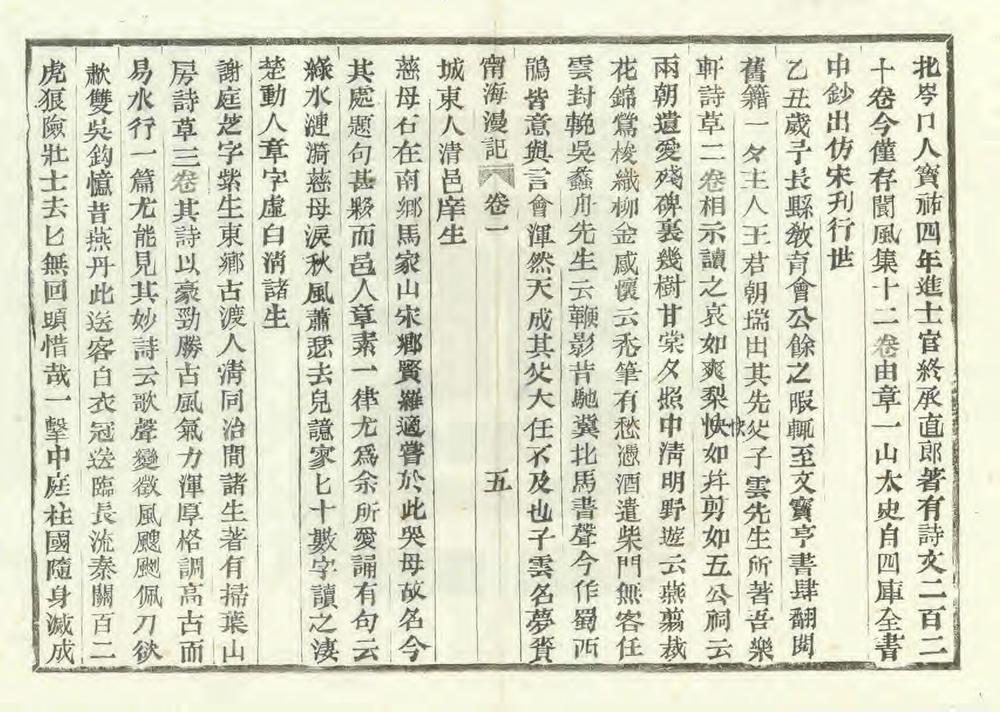 北岑口人寶祐四年進士官終承直郎著有詩文二百二
十卷今僅存閬風集十二卷由章一山太史自四庫全書
中鈔出仿宋刊行世
乙丑歲予長縣教育會公餘之暇輒至文寶亨書肆翻閱
舊籍一夕主人王君朝瑞出其先父子雲先生所著吾樂
軒詩草二卷相示讀之哀如爽梨快如并剪如五公祠云
快
兩朝遺愛殘碑裏幾樹甘棠夕照中淸明野遊云燕翦裁
花錦鶯梭織柳金感懷云禿筆有愁憑酒遣柴門無客任
雲封輓吳蠡舟先生云鞭影昔馳冀北馬書聲今作蜀西
鵑皆意與言會渾然天成其父大任不及也子雲名夢賚
甯海漫記 卷一 五
城東人清邑庠生
慈母石在南鄉馬家山宋鄉賢羅適嘗於此哭母故名今
其處題句甚夥而邑人章素一律尤爲余所愛誦有句云
綠水漣漪慈母淚秋風蕭瑟去兒譩家匕十數字讀之淒
楚動人章字虛白淸諸生
謝庭芝字紫生東鄉古渡人淸同治間諸生著有掃葉山
房詩草三卷其詩以豪勁勝古風氣力渾厚格調高古而
易水行一篇尤能見其妙詩云歌聲變徵風颼颼佩刀欲
歃雙吳鈎憶昔燕丹此送客白衣冠送臨長流秦關百二
虎狼險壯士去匕無回頭惜哉一擊中庭柱國隨身滅成